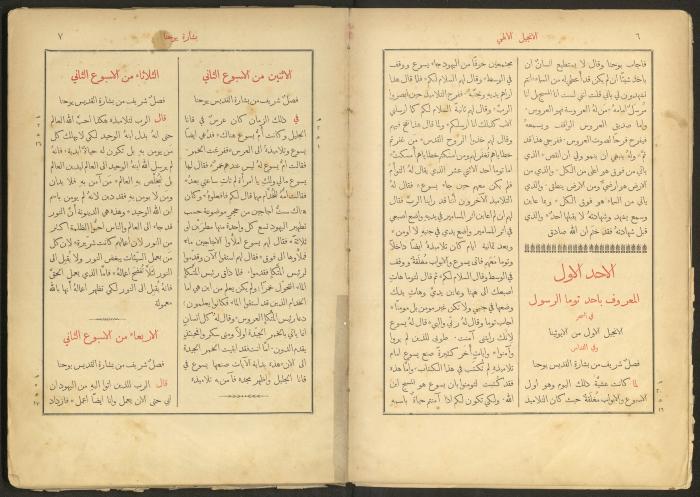 ٦
الانجيل الالهي
فاجاب يوحنا وقال لا يستطيع انسان ان
ياخذ شيئًا ان لم يكن قد أعطي له من السماء* انتم
تشهدون لي باني قلت انني لست انا المسيح بل انا
مرسل امامه* من له العروسة فهو العروس*
واما صديق العروس الواقف ويسمعه
فيفرح فرحًا لصوت العروس* ففرحي هذا قد
تم* وله ينبغي ان ينمو ولي ان انقص* الذي
ياتي من فوق هو اعلى من الكل* والذي من
الارض هو ارضي ومن الارض ينطق* والذي
ياتي من السماء هو فوق الكل* وبما عاين
وسمع يشهد وشهادته لا يقبلها احد* والذي
قبل شهادته فقد ختم ان الله صادق
الاحد الاول
المعروف باحد توما الرسول
في السحر
الانجيل الاول من الايوثينا
وفي القداس
فصل شريف من بشارة القديس يوحنا
لما كانت عشية ذلك اليوم وهو اول
الاسبوع والابواب مغلقة حيث كان التلاميذ
مجتمعين خوفًا من اليهود جاء يسوع ووقف
في الوسط وقال لهم السلام لكم* فلما قال هذا
اراهم يديه وجنبه* ففرح التلاميذ حين ابصروا
الرب* وقال لهم ثانية السلام لكم كما ارسلني
الاب كذلك انا ارسلكم* ولما قال هذا نفخ فيهم
وقال لهم خذوا الروح القدس* من غفرتم
خطاياهم تُغفر لهم ومن امسكتم خطاياهم أُمسكت*
اما توما احد الاثني عشر الذي يقال له التوأم
فلم يكن معهم حين جاء يسوع* فقال له
التلاميذ الاخرون أنا قد راينا الرب* فقال
لهم ان لم اعاين اثر المسامير في يديه واضع اصبعي
في اثر المسامير واضع يدي في جنبه لا اومن*
وبعد ثمانية ايام كان تلاميذه ايضًا داخلًا
وتوما معهم فاتى يسوع والابواب مغلقة ووقف
في الوسط وقال السلام لكم* ثم قال لتوما هات
اصبعك الى هنا وعاين يدي* وهات يدك
وضعها في جنبي ولا تكن غير مومن بل مومنًا*
اجاب توما وقال له ربي والهي* قال له يسوع
لانك رايتني آمنت* طوبى للذين لم يروا
وآمنوا* وايات أُخر كثيرة صنع يسوع امام
تلاميذه لم تُكتب في هذا الكتاب* وانما هذه
فقد كُتبت لتومنوا بان يسوع هو المسيح ابن
الله* ولكي تكون لكم اذا آمنتم حياة باسمه
٧
بشارة يوحنا
الاثنين من الاسبوع الثاني
فصل شريف من بشارة القديس يوحنا
في ذلك الزمان كان عرس في قانا
الجليل وكانت أم يسوع هناك* فدُعي ايضًا
يسوع وتلاميذه الى العرس* ففرغت الخمر
فقالت أم يسوع له ليس عندهم خمر* فقال لها
يسوع مالي ولكِ يا امراة لم تاتِ ساعتي بعد*
فقالت امه للخدام مهما قال لكم فافعلوه* وكان
هناك ست اجاجين من حجر موضوعة حسب
تطهير اليهود تسع كل واحدة منها مطرين او
ثلاثة* فقال لهم يسوع املأوا الاجاجين ماء
فملأوها الى فوق* فقال لهم استقوا الآن وقدموا
لرئيس المتكا فقدموا* فلما ذاق رئيس المتكا
الماء المتحول خمرًا* ولم يكن يعلم من اين هو اما
الخدام الذين قد استقوا الماء فكانوا يعلمون*
دعا رئيس المتكا العروس* وقال له كل انسان
انما ياتي بالخمر الجيدة اولًا ومتى سكروا فحينئذٍ
يقدم الدون* اما انت فقد ابقيت الخمر الجيدة
الى الآن* هذه بداية الآيات صنعها يسوع في
قانا الجليل واظهر مجده فآمن به تلاميذه
الثلاثاء من الاسبوع الثاني
فصل شريف من بشارة القديس يوحنا
قال الرب لتلاميذه هكذا احب الله العالم
حتى انه بذل ابنه الوحيد لكي لا يهلك كل
من يومن به بل تكون له حياة ابدية* فانه
لم يرسل الله ابنه الوحيد الى العالم ليدين العالم
بل ليخلص به العالم* من آمن به فلا يدان
ومن لا يومن به فقد دين لانه لم يومن باسم
ابن الله الوحيد* وهذه هي الدينونة أن النور
قد جاء الى العالم والناس احبوا الظلمة اكثر
من النور لان اعمالهم كانت شريرة* لان كل
من يعمل السيئات يبغض النور ولا يُقبل الى
النور لئلا تُفضح اعماله* فاما الذي يعمل الحق
فانه يُقبل الى النور لكي تظهر اعماله انها بالله
معمولة
الاربعاء من الاسبوع الثاني
فصل شريف من بشارة القديس يوحنا
قال الرب للذين اتوا اليه من اليهود ان
ابي حتى الآن يعمل وانا ايضًا اعمل* فازداد